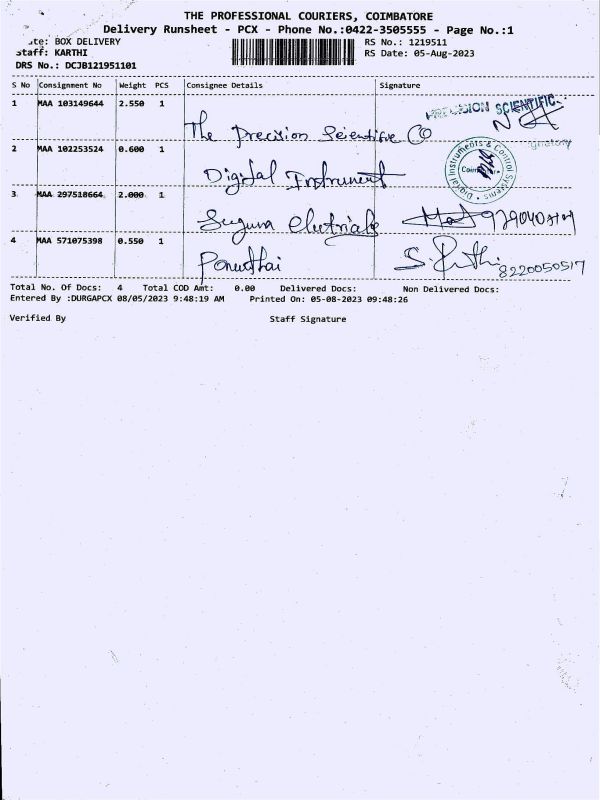 THE PROFESSIONAL COURIERS, COIMBATORE
Delivery Runsheet - PCX - Phone No.:0422-3505555 - Page No.:1
te: BOX DELIVERY
RS No.: 1219511
staff: KARTHI
RS Date: 05-Aug-2023
DRS No.: DCJB121951101
S No Consignment No Weight PCS Consignee Details Signature
1 MAA 103149644 2.550 1
PRECISION SCIENTIFIC
The Precision Scientific Co
2 MAA 102253524 0.600 1
Digital Instruments & Control Systems
Digital Instrument
3 MAA 297518664 2.000 1
Suguna
4 MAA 571075398 0.550 1
Ponvuthai
8220050517
Total No. Of Docs: 4 Total COD Amt: 0.00 Delivered Docs: Non Delivered Docs:
Entered By :DURGAPCX 08/05/2023 9:48:19 AM Printed On: 05-08-2023 09:48:26
Verified By Staff Signature